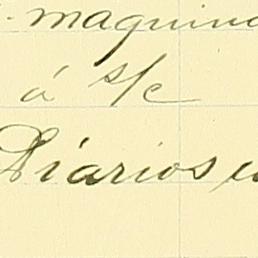 maquina
á s/c
Diarios